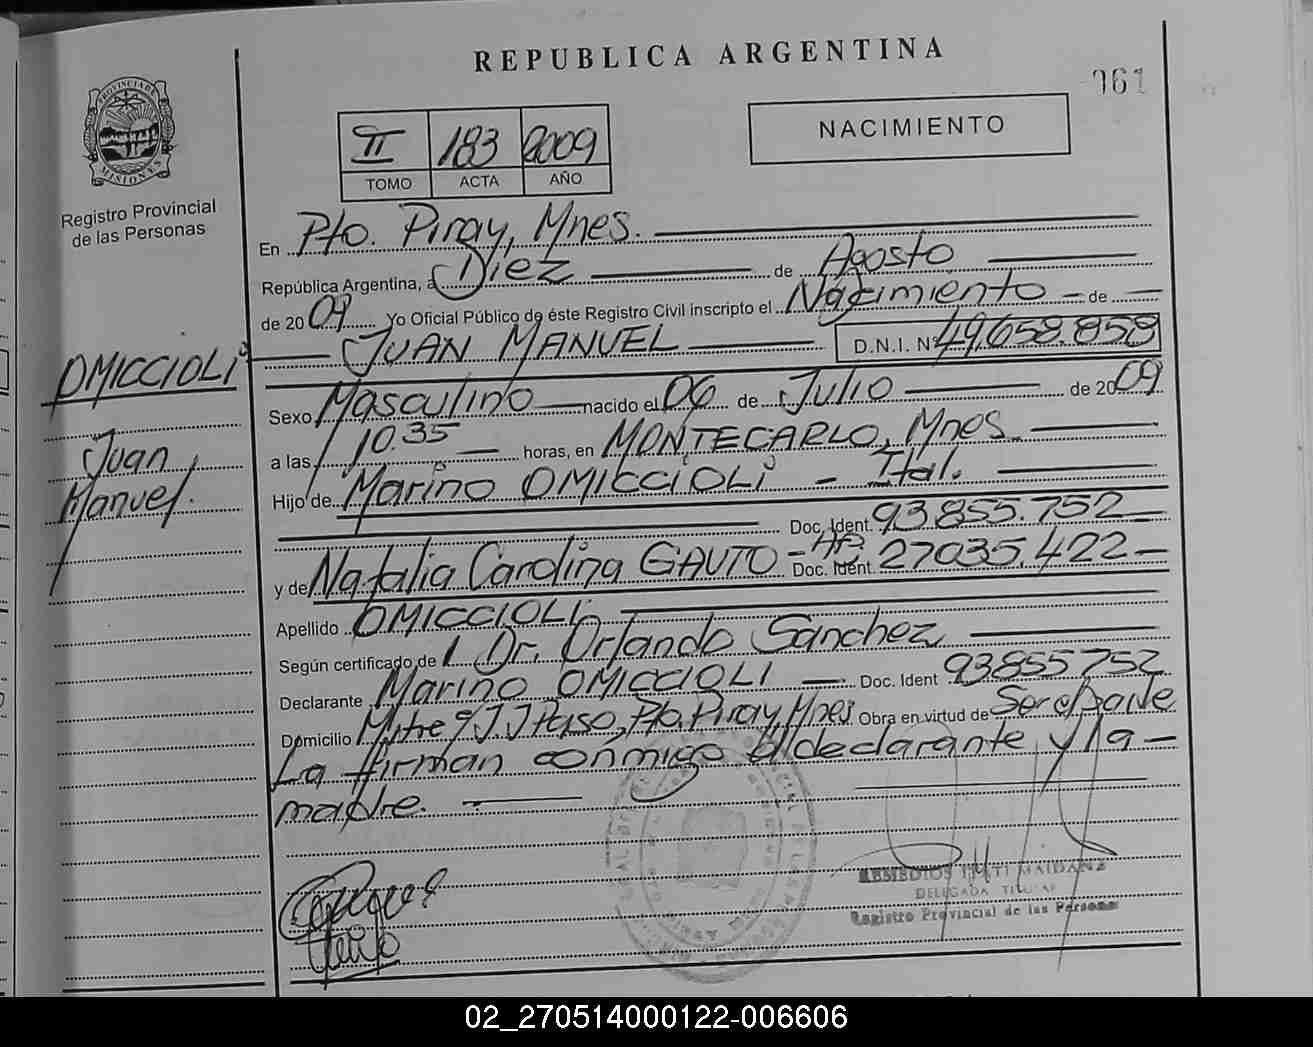 REPUBLICA ARGENTINA
061
PROVINCIA DE
MISIONES
Registro Provincial
de las Personas
II 183 2009
TOMO ACTA AÑO
NACIMIENTO
En Pto. Piray, Mnes.
República Argentina, a Diez de Agosto
de 2009 Yo Oficial Público de éste Registro Civil inscripto el Nacimiento de
JUAN MANUEL D.N.I. Nº 49.658.858
OMICCIOLI
Juan
Manuel.
Sexo Masculino nacido el 06 de Julio de 2009
a las 10.35 horas, en MONTECARLO, Mnes.
Hijo de Marino OMICCIOLI - Ital.
Doc. Ident. 93.855.752
y de Natalia Carolina GAUTO - Doc. Ident. 27035.422
Apellido OMICCIOLI
Según certificado de Dr. Orlando Sanchez
Declarante Marino OMICCIOLI Doc. Ident 93855752
Domicilio Mitre y J.J Paso, Pto. Piray, Mnes Obra en virtud de Ser el padre
La firman conmigo el declarante y la
madre.
REMEDIOS ITATI MAIDANZ
DELEGADA TITULAR
Registro Provincial de las Personas
02_270514000122-006606